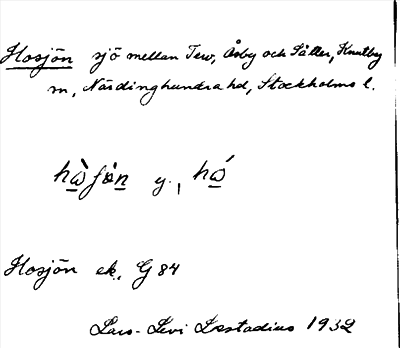 Hosjön sjö mellan Tew, Åsby och Sätter, Knutby
sn, Närdinghundra hd, Stockholms l.
hὼfön y., hώ
Hosjön ek. G 84
Lars-Levi Læstadius 1932